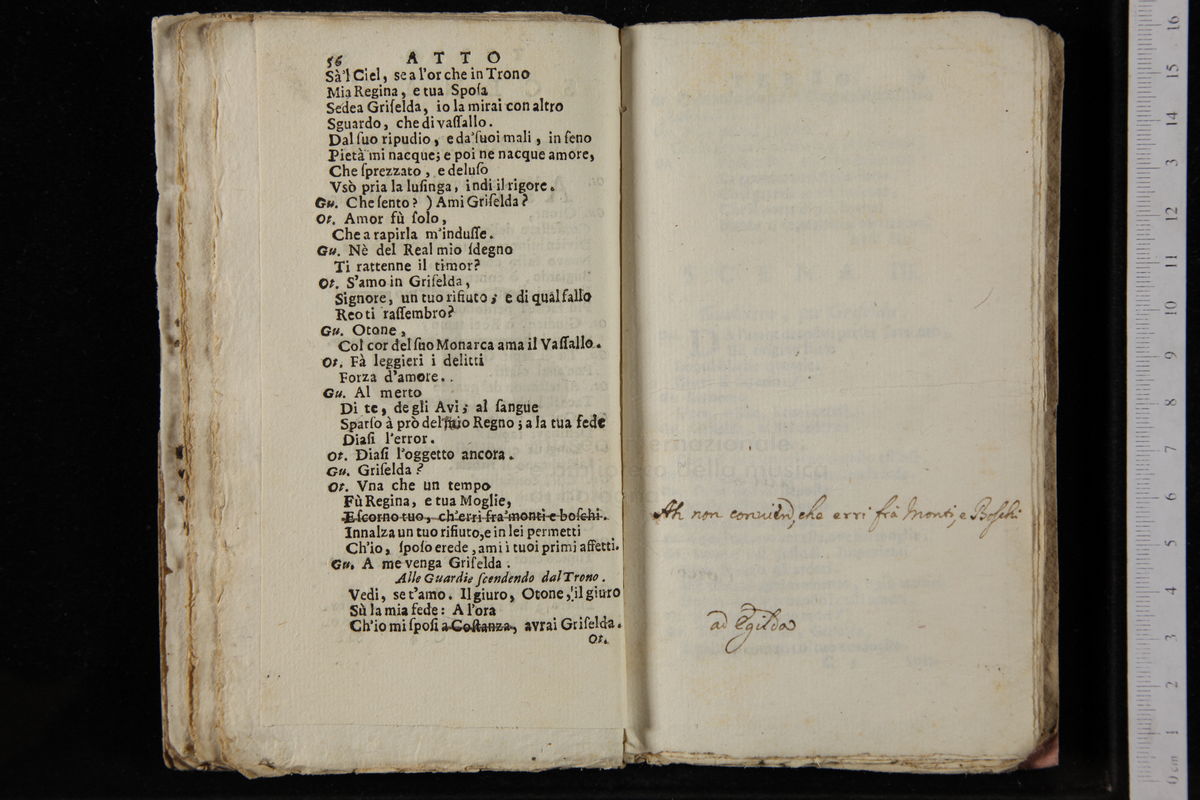 56 ATTO
Sà'l Ciel, se a l'or che in Trono
Mia Regina, e tua Sposa
Sedea Griselda, io la mirai con altro
Sguardo, che di vassallo.
Dal suo ripudio, e da' suoi mali, in seno
Pietà mi nacque; e poi ne nacque amore,
Che sprezzato, e deluso
Vsò pria la lusinga, indi il rigore.
Gu. Che sento? ) Ami Griselda?
Ot. Amor fù solo,
Che a rapirla m'indusse.
Gu. Nè del Real mio sdegno
Ti rattenne il timor?
Ot. S'amo in Griselda,
Signore, un tuo rifiuto; e di qual fallo
Reo ti rassembro?
Gu. Otone,
Col cor del suo Monarca ama il Vassallo.
Ot. Fà leggieri i delitti
Forza d'amore..
Gu. Al merto
Di te, de gli Avi; al sangue
Sparso à prò del mio Regno; a la tua fede
Diasi l'error.
Ot. Diasi l'oggetto ancora.
Gu. Griselda?
Ot. Vna che un tempo
Fù Regina, e tua Moglie,
E scorno tuo, ch'erri fra' monti e boschi.
Innalza un tuo rifiuto, e in lei permetti
Ch'io, sposo erede, ami i tuoi primi affetti.
Gu. A me venga Griselda.
Alle Guardie scendendo dal Trono.
Vedi, se t'amo. Il giuro, Otone, il giuro
Sù la mia fede: A l'ora
Ch'io mi sposi a Costanza, avrai Griselda.
Ot.
Ah non convien, che erri frà Monti, e Boschi
ad Egilda
museo internazionale
e biblioteca della musica
di bologna